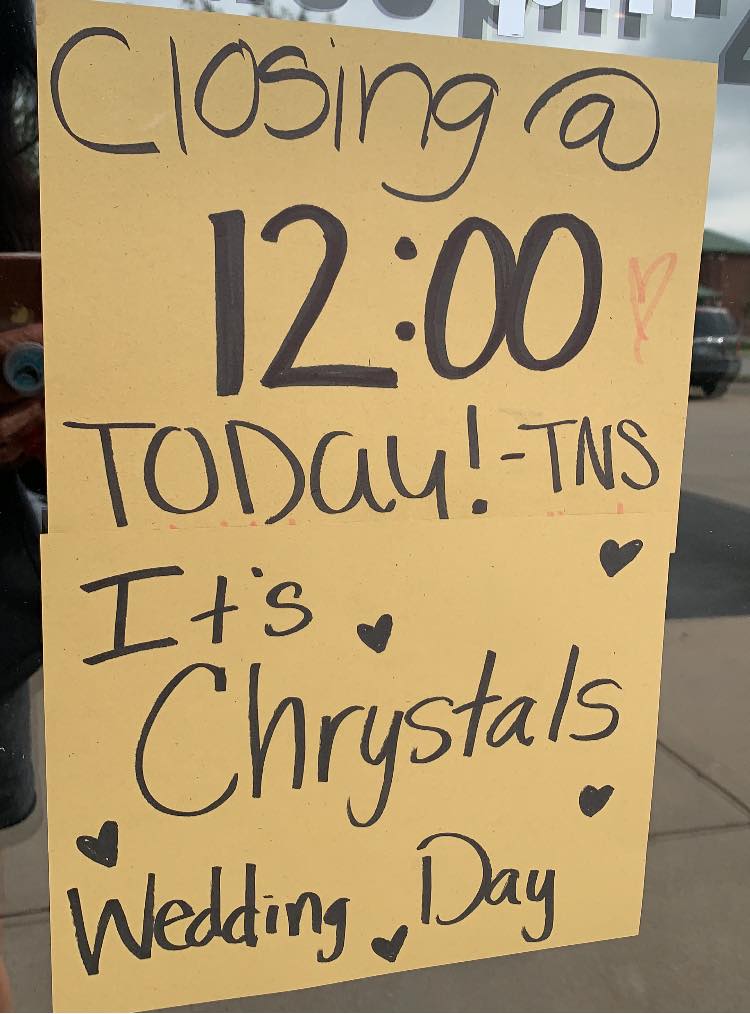 Closing @
12:00
TODay! -TNS
It's
Chrystals
Wedding Day